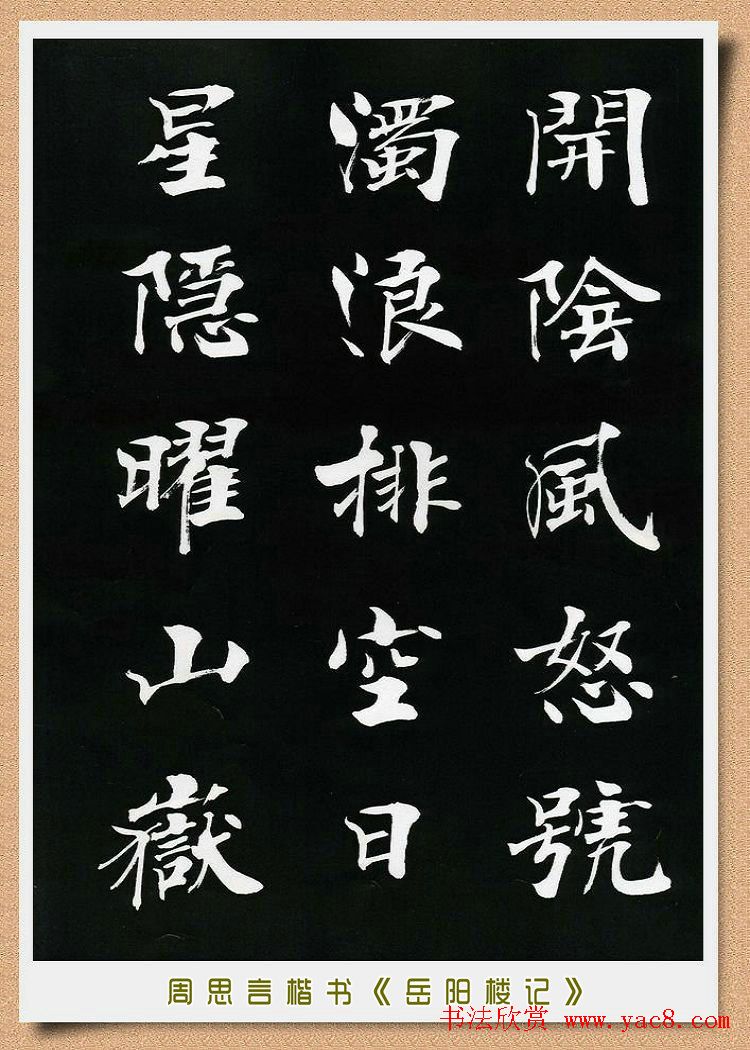 開陰風怒號
濁浪排空日
星隱曜山嶽
周思言楷书《岳阳楼记》
书法欣赏 www.yac8.com